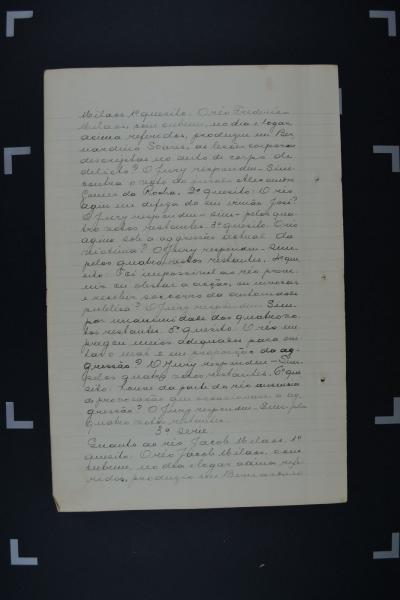 Milaos 1º quesito. O réo Frederico
Milaos, com outrem, no dia e logar
acima referidos, produziu em Ber
nardino Soares, as lesões corporaes
descriptas no auto de corpo de
delicto? O Jury respondeu - Sim
contra o voto do jurado Alexandre
Gomes da Rocha. 2º quesito: O réo
agiu em defeza do seu irmão José?
O Jury respondeu - sim - pelos qua
tro votos restantes. 3º quesito: O réo
agiu sob a aggressão actual da
victima? O Jury respondeu - Sim
pelos quatro votos restantes. 4º que
sito: Foi impossivel ao réo preve
nir ou obstar a acção, ou invocar
e receber soccorro da autoridade
publica? O Jury respondeu Sim
por unanimidade dos quatro vo
tos restantes. 5º quesito: O réo em
pregou meios adequados para evi
tar o mal e em proporção da ag
gressão? O Jury respondeu - Sim
pelos quatro votos restantes. 6º que
sito: houve da parte do réo ausencia
de provocação que occasionasse a ag
gressão? O Jury respondeu - Sim - pelos
quatro votos restantes.
3ª serie
Quanto ao réo Jacob Milaos. 1º
quesito: O réo Jacob Milaos, com
outrem, no dia e logar acima refe
ridos, produziu em Bernardino